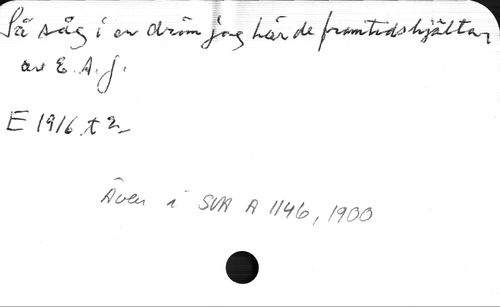 Så såg i en dröm jag här de framtidshjältar
av E. A. J.
E 1916 t 2
Även i SVA A 1146, 1900